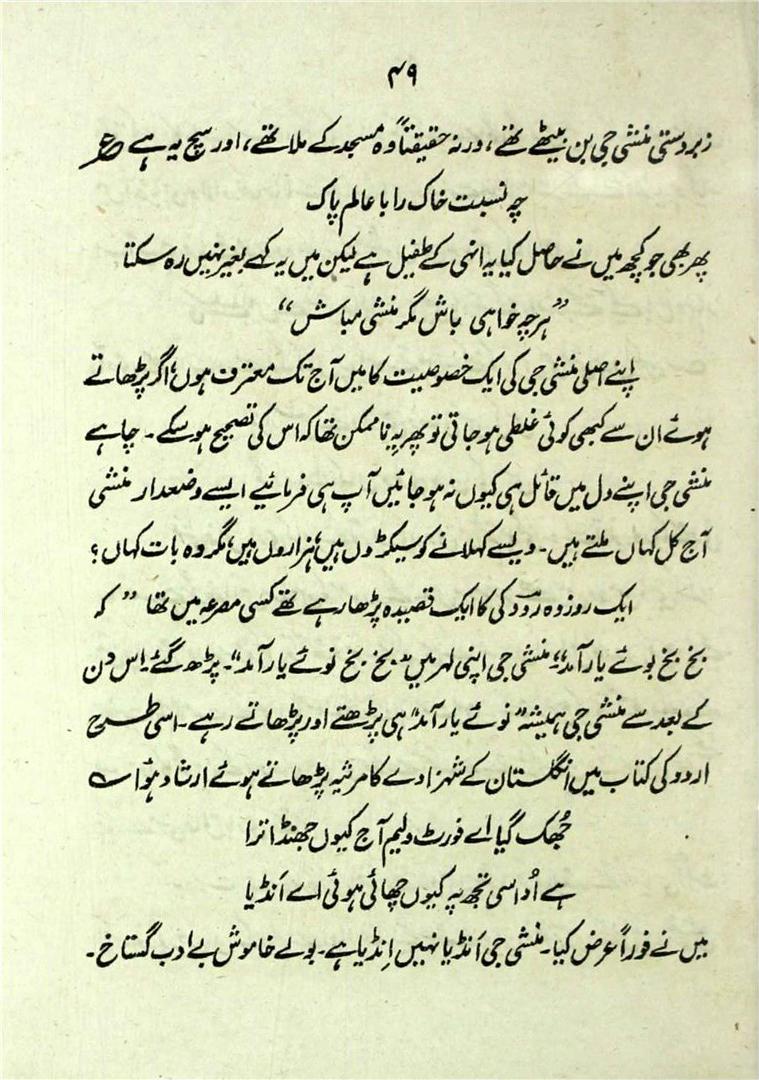 ۴۹
زبردستی منشی جی بن بیٹھے تھے، ورنہ حقیقتاً وہ مسجد کے ملا تھے، اور سچ یہ ہے ع
چہ نسبت خاک را با عالم پاک
پھر بھی جو کچھ میں نے حاصل کیا یہ انہی کے طفیل ہے لیکن میں یہ کہے بغیر نہیں رہ سکتا
”ہرچہ خواہی باش مگر منشی مباش“
اپنے اصلی منشی جی کی ایک خصوصیت کا میں آج تک معترف ہوں؛ اگر پڑھاتے
ہوئے ان سے کبھی کوئی غلطی ہو جاتی تو پھر یہ ناممکن تھا کہ اس کی تصحیح ہو سکے۔ چاہے
منشی جی اپنے دل میں قائل ہی کیوں نہ ہو جائیں آپ ہی فرمائیے ایسے وضعدار منشی
آج کل کہاں ملتے ہیں۔ ویسے کہلانے کو سیکڑوں ہیں، ہزاروں ہیں، مگر وہ بات کہاں؟
ایک روز وہ رودکی کا ایک قصیدہ پڑھا رہے تھے کسی مصرعہ میں تھا ” کہ
بخ بخ بوئے یار آمد“ منشی جی اپنی لہر میں ”بخ بخ نوئے یار آمد“۔ پڑھ گئے۔ اس دن
کے بعد سے منشی جی ہمیشہ ”نوئے یار آمد“ ہی پڑھتے اور پڑھاتے رہے۔ اسی طرح
اردو کی کتاب میں انگلستان کے شہزادے کا مرثیہ پڑھاتے ہوئے ارشاد ہوا ؎
جُھک گیا اے فورٹ ولیم آج کیوں جھنڈا ترا
ہے اُداسی تجھ پہ کیوں چھائی ہوئی اے اَنڈیا
میں نے فوراً عرض کیا۔ منشی جی اَنڈیا نہیں اِنڈیا ہے۔ بولے خاموش بے ادب گستاخ۔